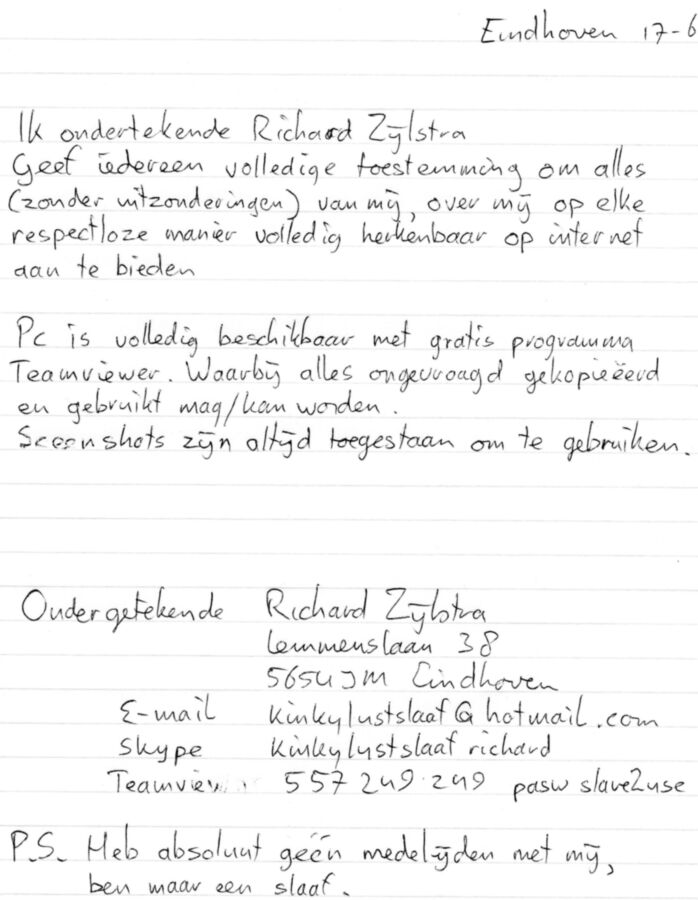 Eindhoven 17-6
Ik ondertekende Richard Zijlstra
Geef iedereen volledige toestemming om alles
(zonder uitzonderingen) van mij, over mij op elke
respectloze manier volledig herkenbaar op internet
aan te bieden
Pc is volledig beschikbaar met gratis programma
Teamviewer. Waarbij alles ongevraagd gekopieëerd
en gebruikt mag/kan worden.
zijn altijd toegestaan om te gebruiken.
Ondergetekende Richard Zijlstra
Lemmenslaan 38
5654JM Eindhoven
E-mail kinkylustslaaf@hotmail.com
Skype kinkylustslaaf richard
557 249 249 pasw slave2use
P.S. Heb absoluut geén medelijden met mij,
ben maar een slaaf.